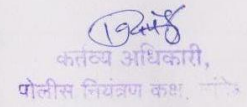 कर्तव्य अधिकारी,
पोलीस नियंत्रण कक्ष,